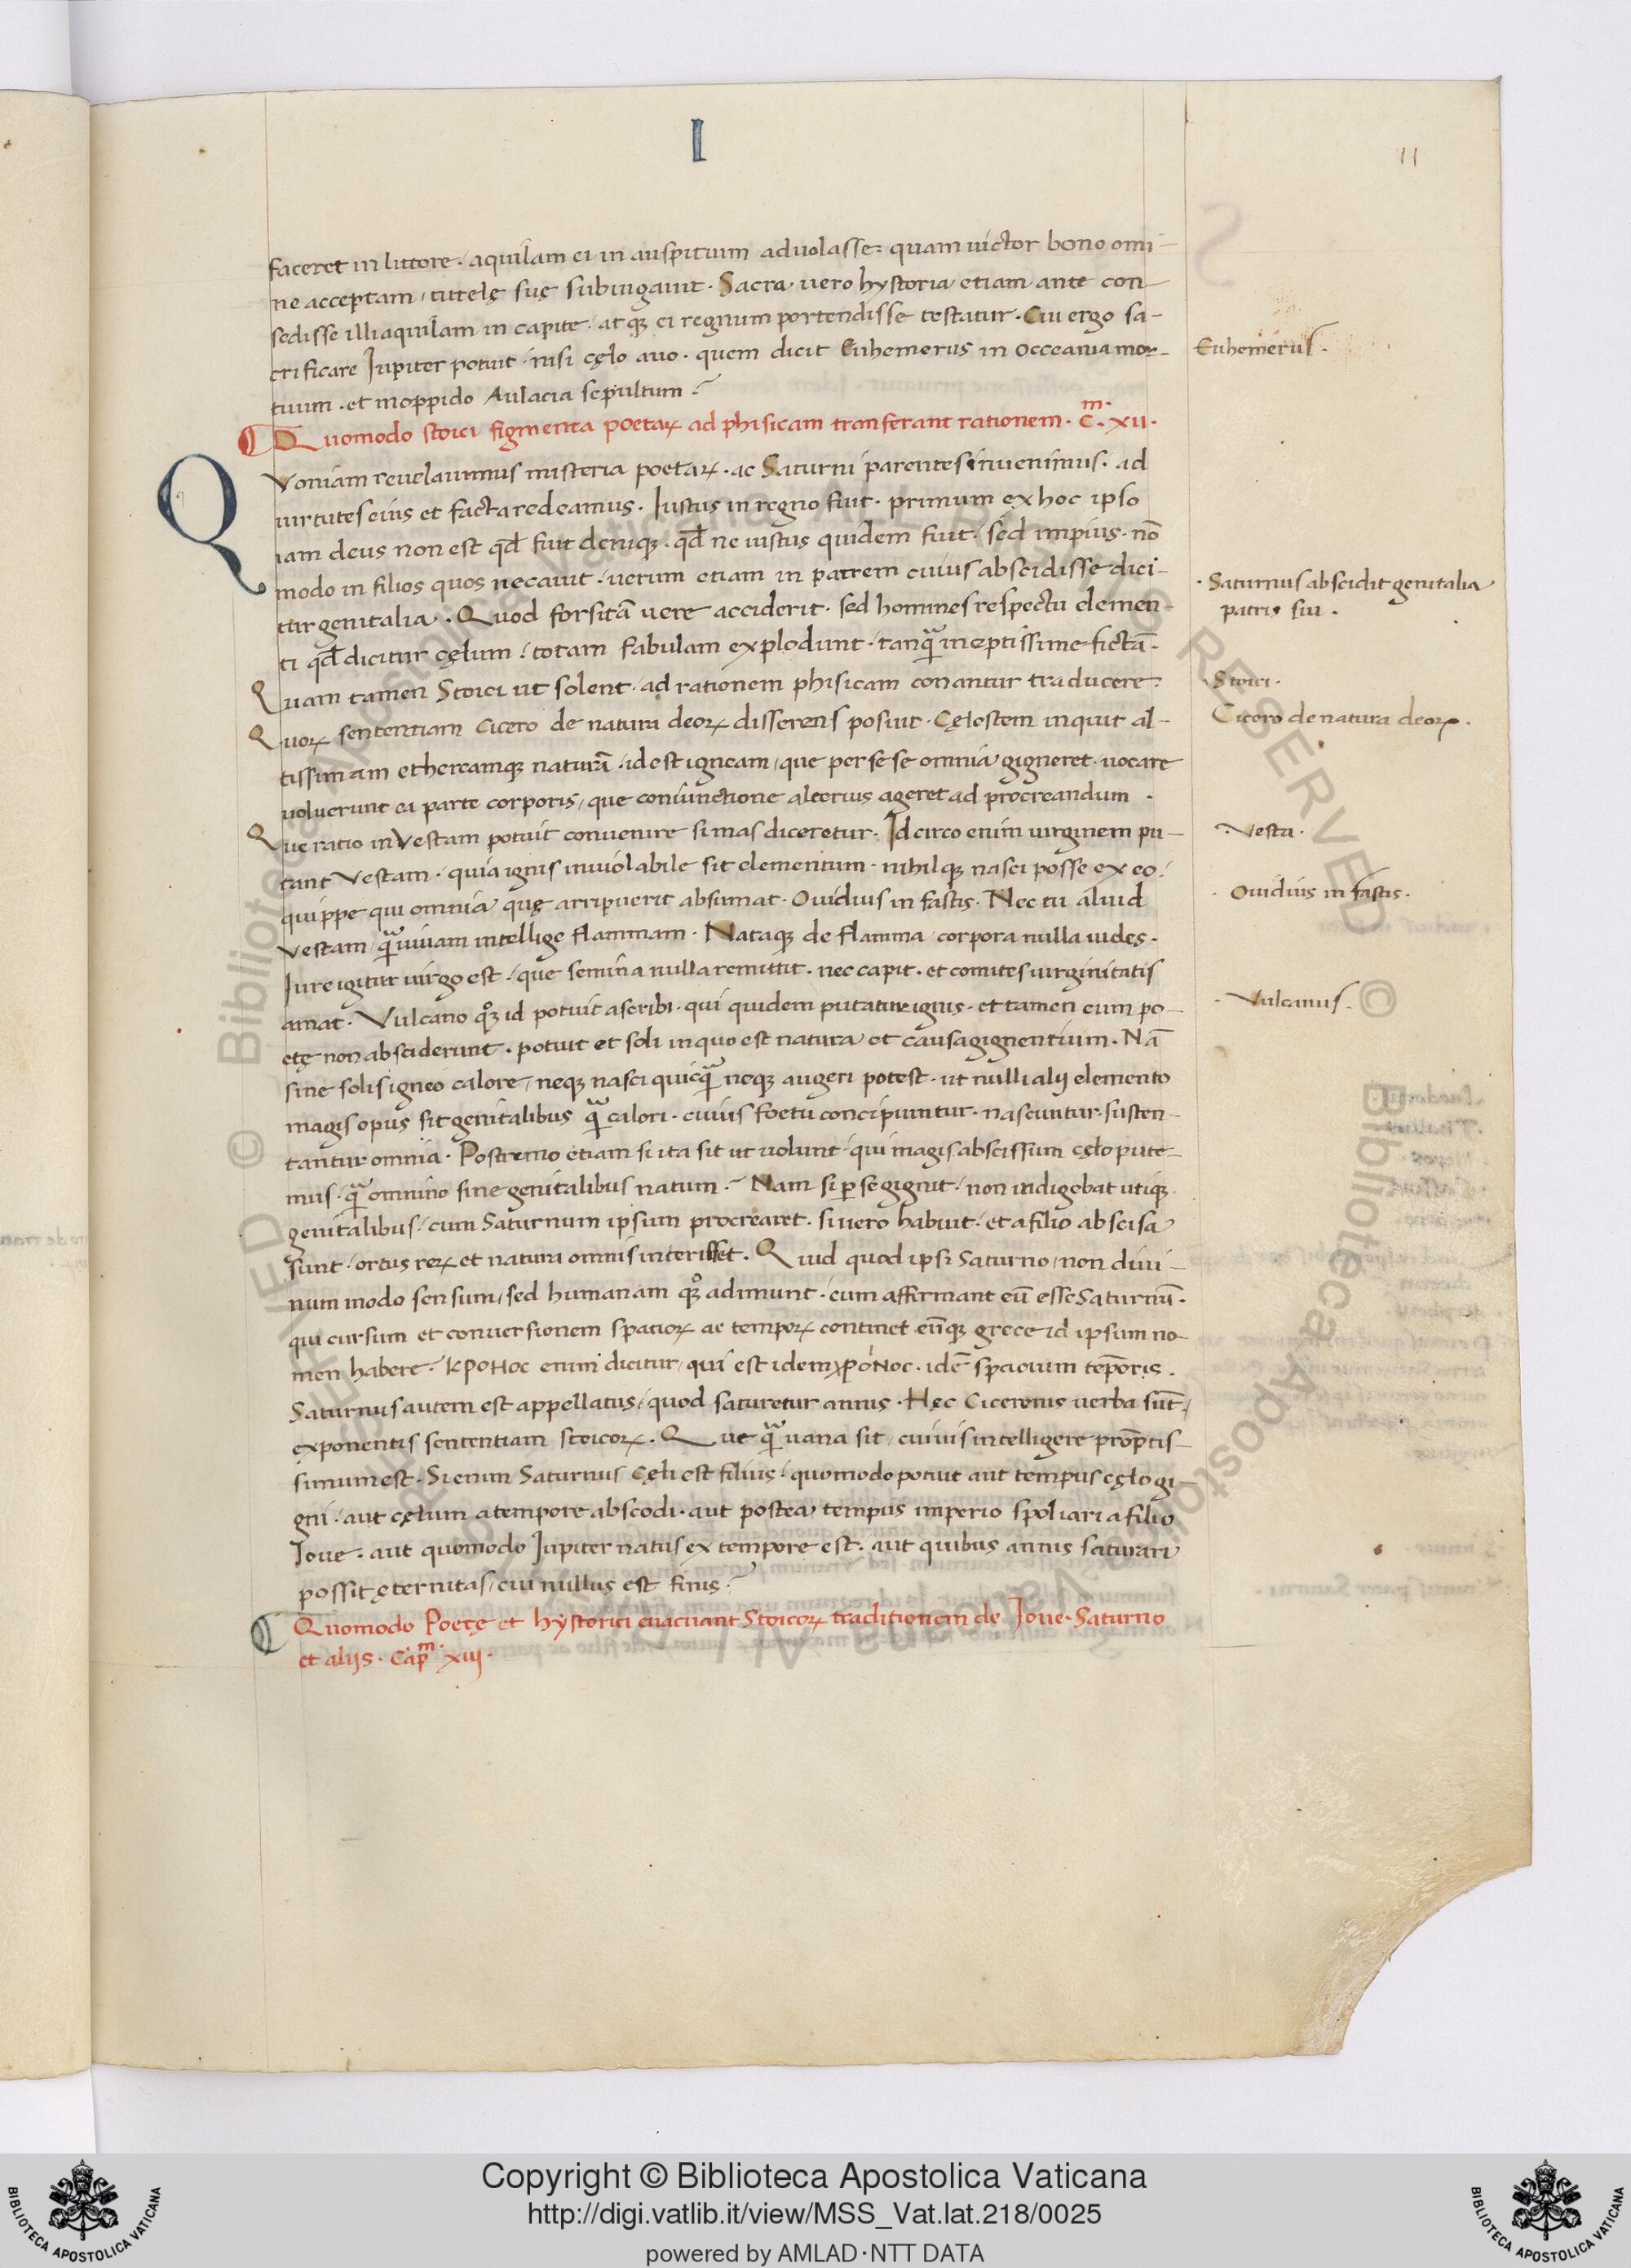 I
11
faceret in littore · aquilam ei in auspitium aduolasse : quam uictor bono omi-
ne acceptam, tutelę suę subiugauit · Sacra · uero hystoria etiam ante con-
sedisse illi aquilam in capite · atq; ei regnum portendisse testatur · Cui ergo sa-
crificare Jupiter potuit · nisi cęlo auo · quem dicit Euhemerus in occeania mor-
tuum · et in oppido Aulacia sepultum ?
Euhemerus ·
Quomodo stoici figmenta poetaꝝ ad phisicam tranferant rationem · C.m XII ·
Quoniam reuelauimus misteria poetaꝝ · ac Saturni parentes inuenimus · ad
uirtutes eius et facta redeamus · Iustus in regno fuit · primum ex hoc ipso
iam deus non est qđ fuit deniq; · qđ ne iustus quidem fuit · sed impius · nō
modo in filios quos necauit · uerum etiam in patrem cuius abscidisse dici-
tur genitalia · Quod forsitā uere acciderit · sed homines respectu elemen-
ti qđ dicitur cęlum : totam fabulam explodunt · tanq̃ ineptissime fictā ·
Quam tamen Stoici ut solent · ad rationem phisicam conantur traducere ·
Quoꝝ sententiam Cicero de natura deoꝝ disserens posuit · Cęlostem inquit al-
tissimam ethereamq; naturā · id est igneam, que per sese omnia gigneret · uocare
uoluerunt ea parte corporis, que coniunctione alterius ageret ad procreandum ·
Que ratio in Vestam potuit conuenire si mas diceretur · Idcirco enim uirginem pu-
tant Vestam · quia ignis inuiolabile sit elementum · nihilq; nasci posse ex eo :
quippe qui omnia quę arripuerit absumat · Ouidius in fastis · Nec tu aliud
Vestam q̃ uiuam intellige flammam · Nataq; de flamma corpora nulla uides ·
Iure igitur uirgo est : que semina nulla remittit · nec capit · et comites uirginitatis
amat · Vulcano qͦꝫ id potuit ascribi · qui quidem putatur ignis · et tamen eum po-
etę non absciderunt · potuit et soli in quo est natura et causa gignentium · Nā
sine solis igneo calore, neq; nasci quicq̃ neq; augeri potest · ut nulli alij elemento
magis opus sit genitalibus q̃ calori · cuius foetu concipiuntur · nascuntur · susten-
tantur omnia · Postremo etiam si ita sit ut uolunt · qui magis abscissum cęlo pute-
mus · q̃ omnino sine genitalibus natum ? Nam si p̱ se gignit · non indigebat utiq;
genitalibus · cum Saturnum ipsum procrearet · si uero habuit · et a filio abscisa
sunt · ortus reꝝ et natura omnis interisset · Quid quod ipsi Saturno, non diui-
num modo sensum, sed humanam qͦꝫ adimunt · cum affirmant eū esse Saturnū ·
qui cursum et conuersionem spatioꝝ ac tempoꝝ continet · eūq; grece id ipsum no-
men habere · ΚΡΟΝΟC enim dicitur, qui est idem χρόΝΟC · idē spacium tēporis ·
Saturnus autem est appellatus, quod saturetur annis · Hęc Ciceronis uerba sūt,
exponentis sententiam stoicoꝝ · Que q̃ uana sit, cuiuis intelligere promptis-
simum est · Si enim Saturnus Cęli est filius · quomodo potuit aut tempus cęlo gi-
gni · aut cęlum a tempore abscodi · aut postea tempus imperio spoliari a filio
Ioue · aut quomodo Iupiter natus ex tempore est · aut quibus annis saturari
possit ęternitas, cui nullus est finis ?
Quomodo Poetę et hystorici euacuant Stoicoꝝ traditionem de Ioue · Saturno
et aliis · Cap̄m XIII ·
· Saturnus abscidit genitalia
patris sui ·
· Stoici ·
Cicero de natura deoꝝ ·
· Vesta ·
· Ouidius in fastis ·
· Vulcanus ·
Copyright © Biblioteca Apostolica Vaticana
http://digi.vatlib.it/view/MSS_Vat.lat.218/0025
powered by AMLAD·NTT DATA
BIBLIOTECA APOSTOLICA VATICANA
BIBLIOTECA APOSTOLICA VATICANA